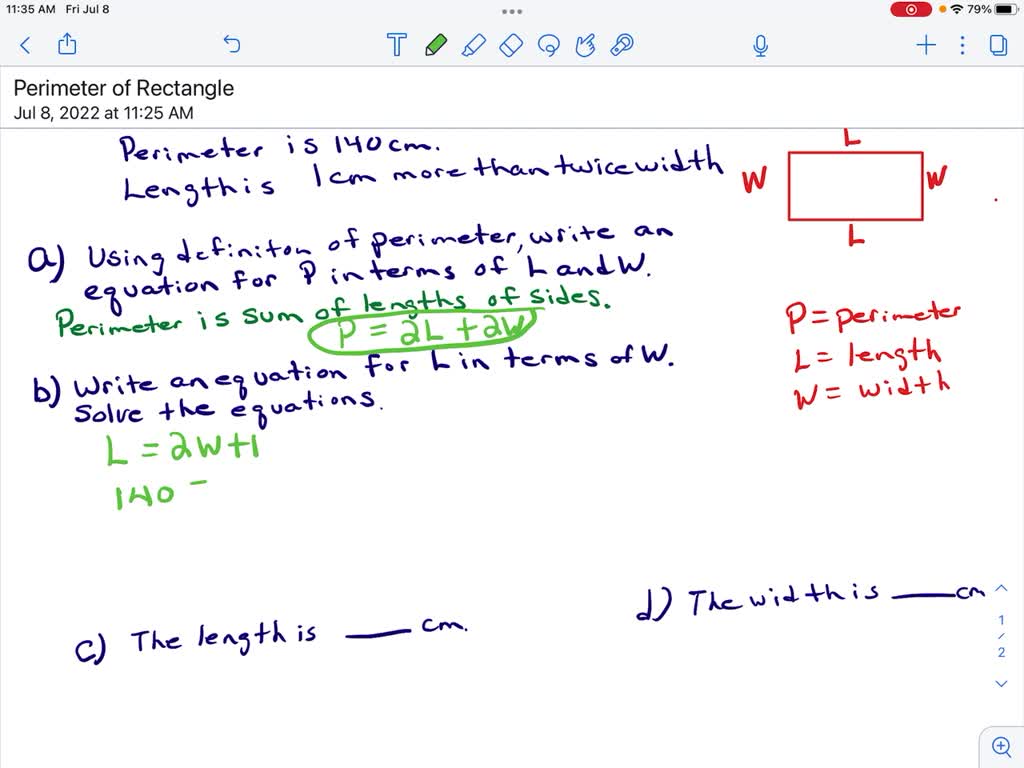 11:35 AM Fri Jul 8
79%
T
Perimeter of Rectangle
Jul 8, 2022 at 11:25 AM
Perimeter is 140cm.
Length is 1cm more than twice width
L
W
W
L
a) Using definiton of perimeter, write an
equation for P in terms of L and W.
Perimeter is sum of lengths of sides.
P = 2L + 2W
P = perimeter
L = length
W = width
b) Write an equation for L in terms of W.
Solve the equations.
L = 2W+1
140 -
c) The length is ___ cm.
d) The width is ___ cm
1
/
2